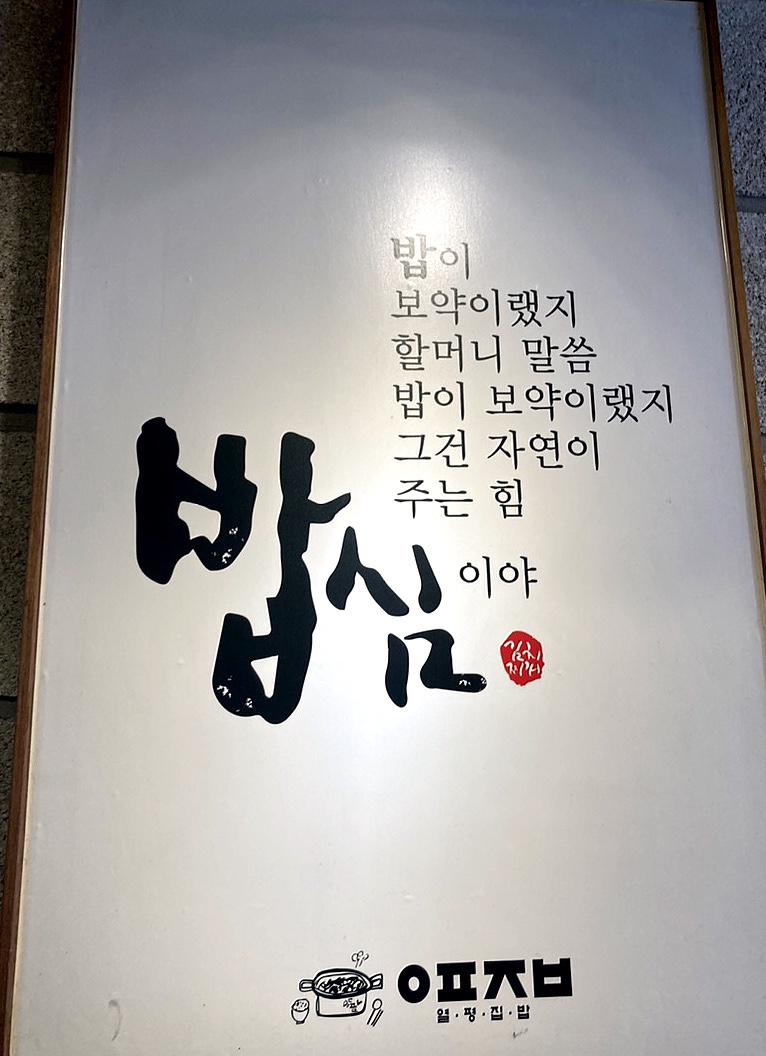 밥이
보약이랬지
할머니 말씀
밥이 보약이랬지
그건 자연이
주는 힘
밥심이야
김치
찌개
ㅇㅍㅈㅂ
열·평·집·밥